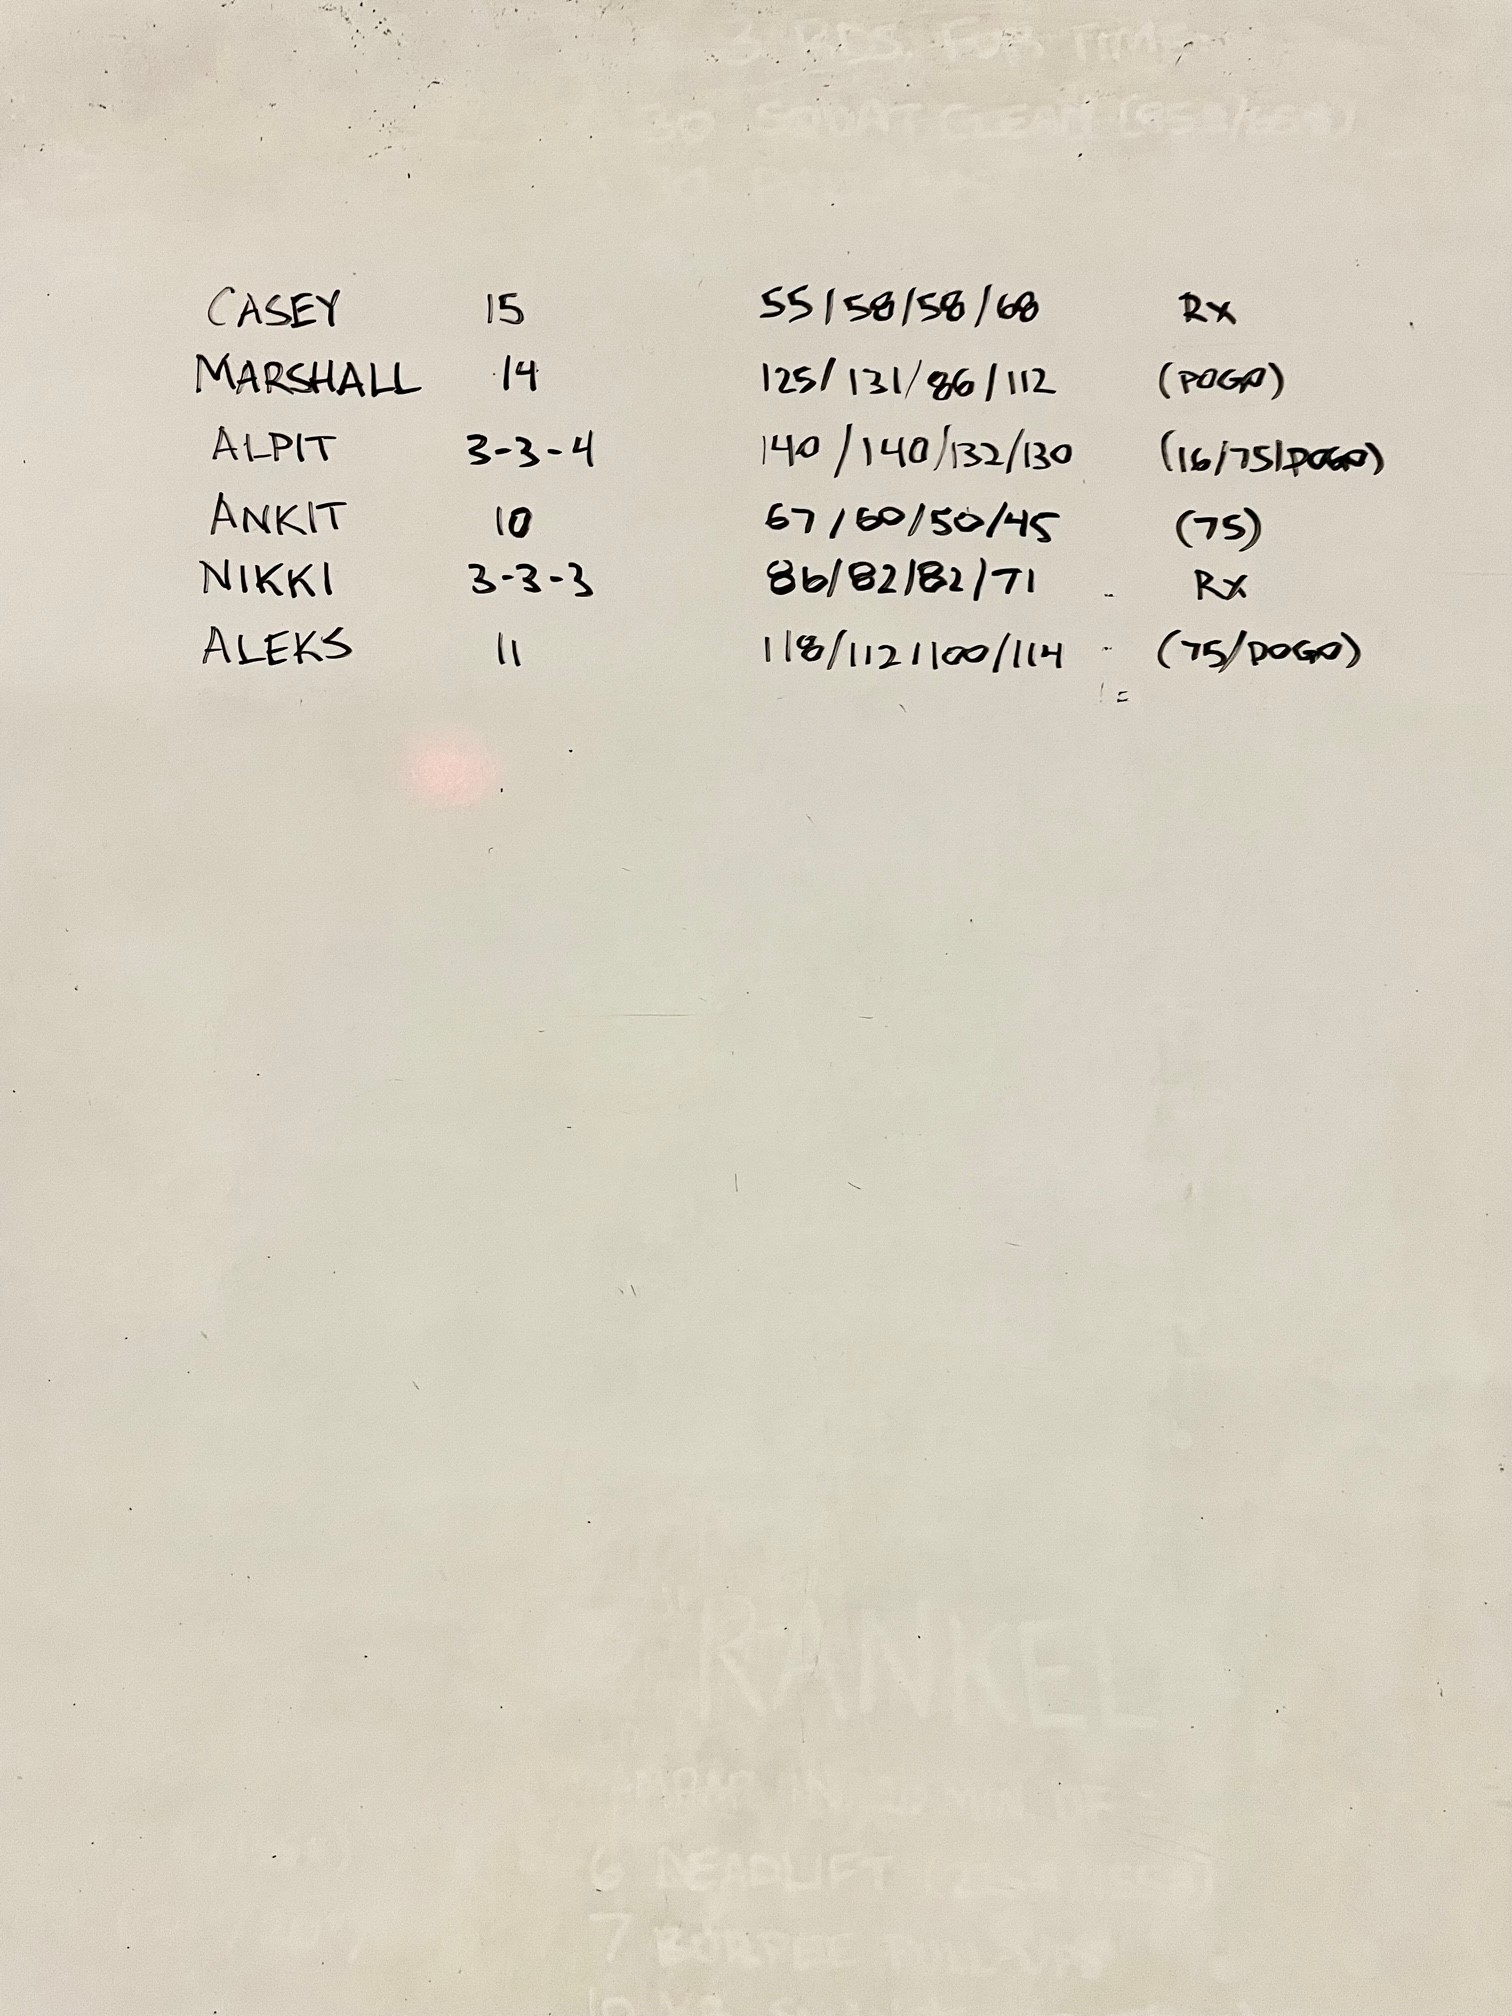 3 RDS. FOR TIME
30 SQUAT CLEAN
CASEY 15 55/58/58/68 Rx
MARSHALL 14 125/131/86/112 (POGO)
ALPIT 3-3-4 140/140/132/130 (16/75/POGO)
ANKIT 10 67/60/50/45 (75)
NIKKI 3-3-3 86/82/82/71 Rx
ALEKS 11 118/112/100/114 (75/POGO)
"RANKEL
AMRAP IN 20 MIN. OF
6 DEADLIFT
7 BURPEE PULL-UPS
10 KB